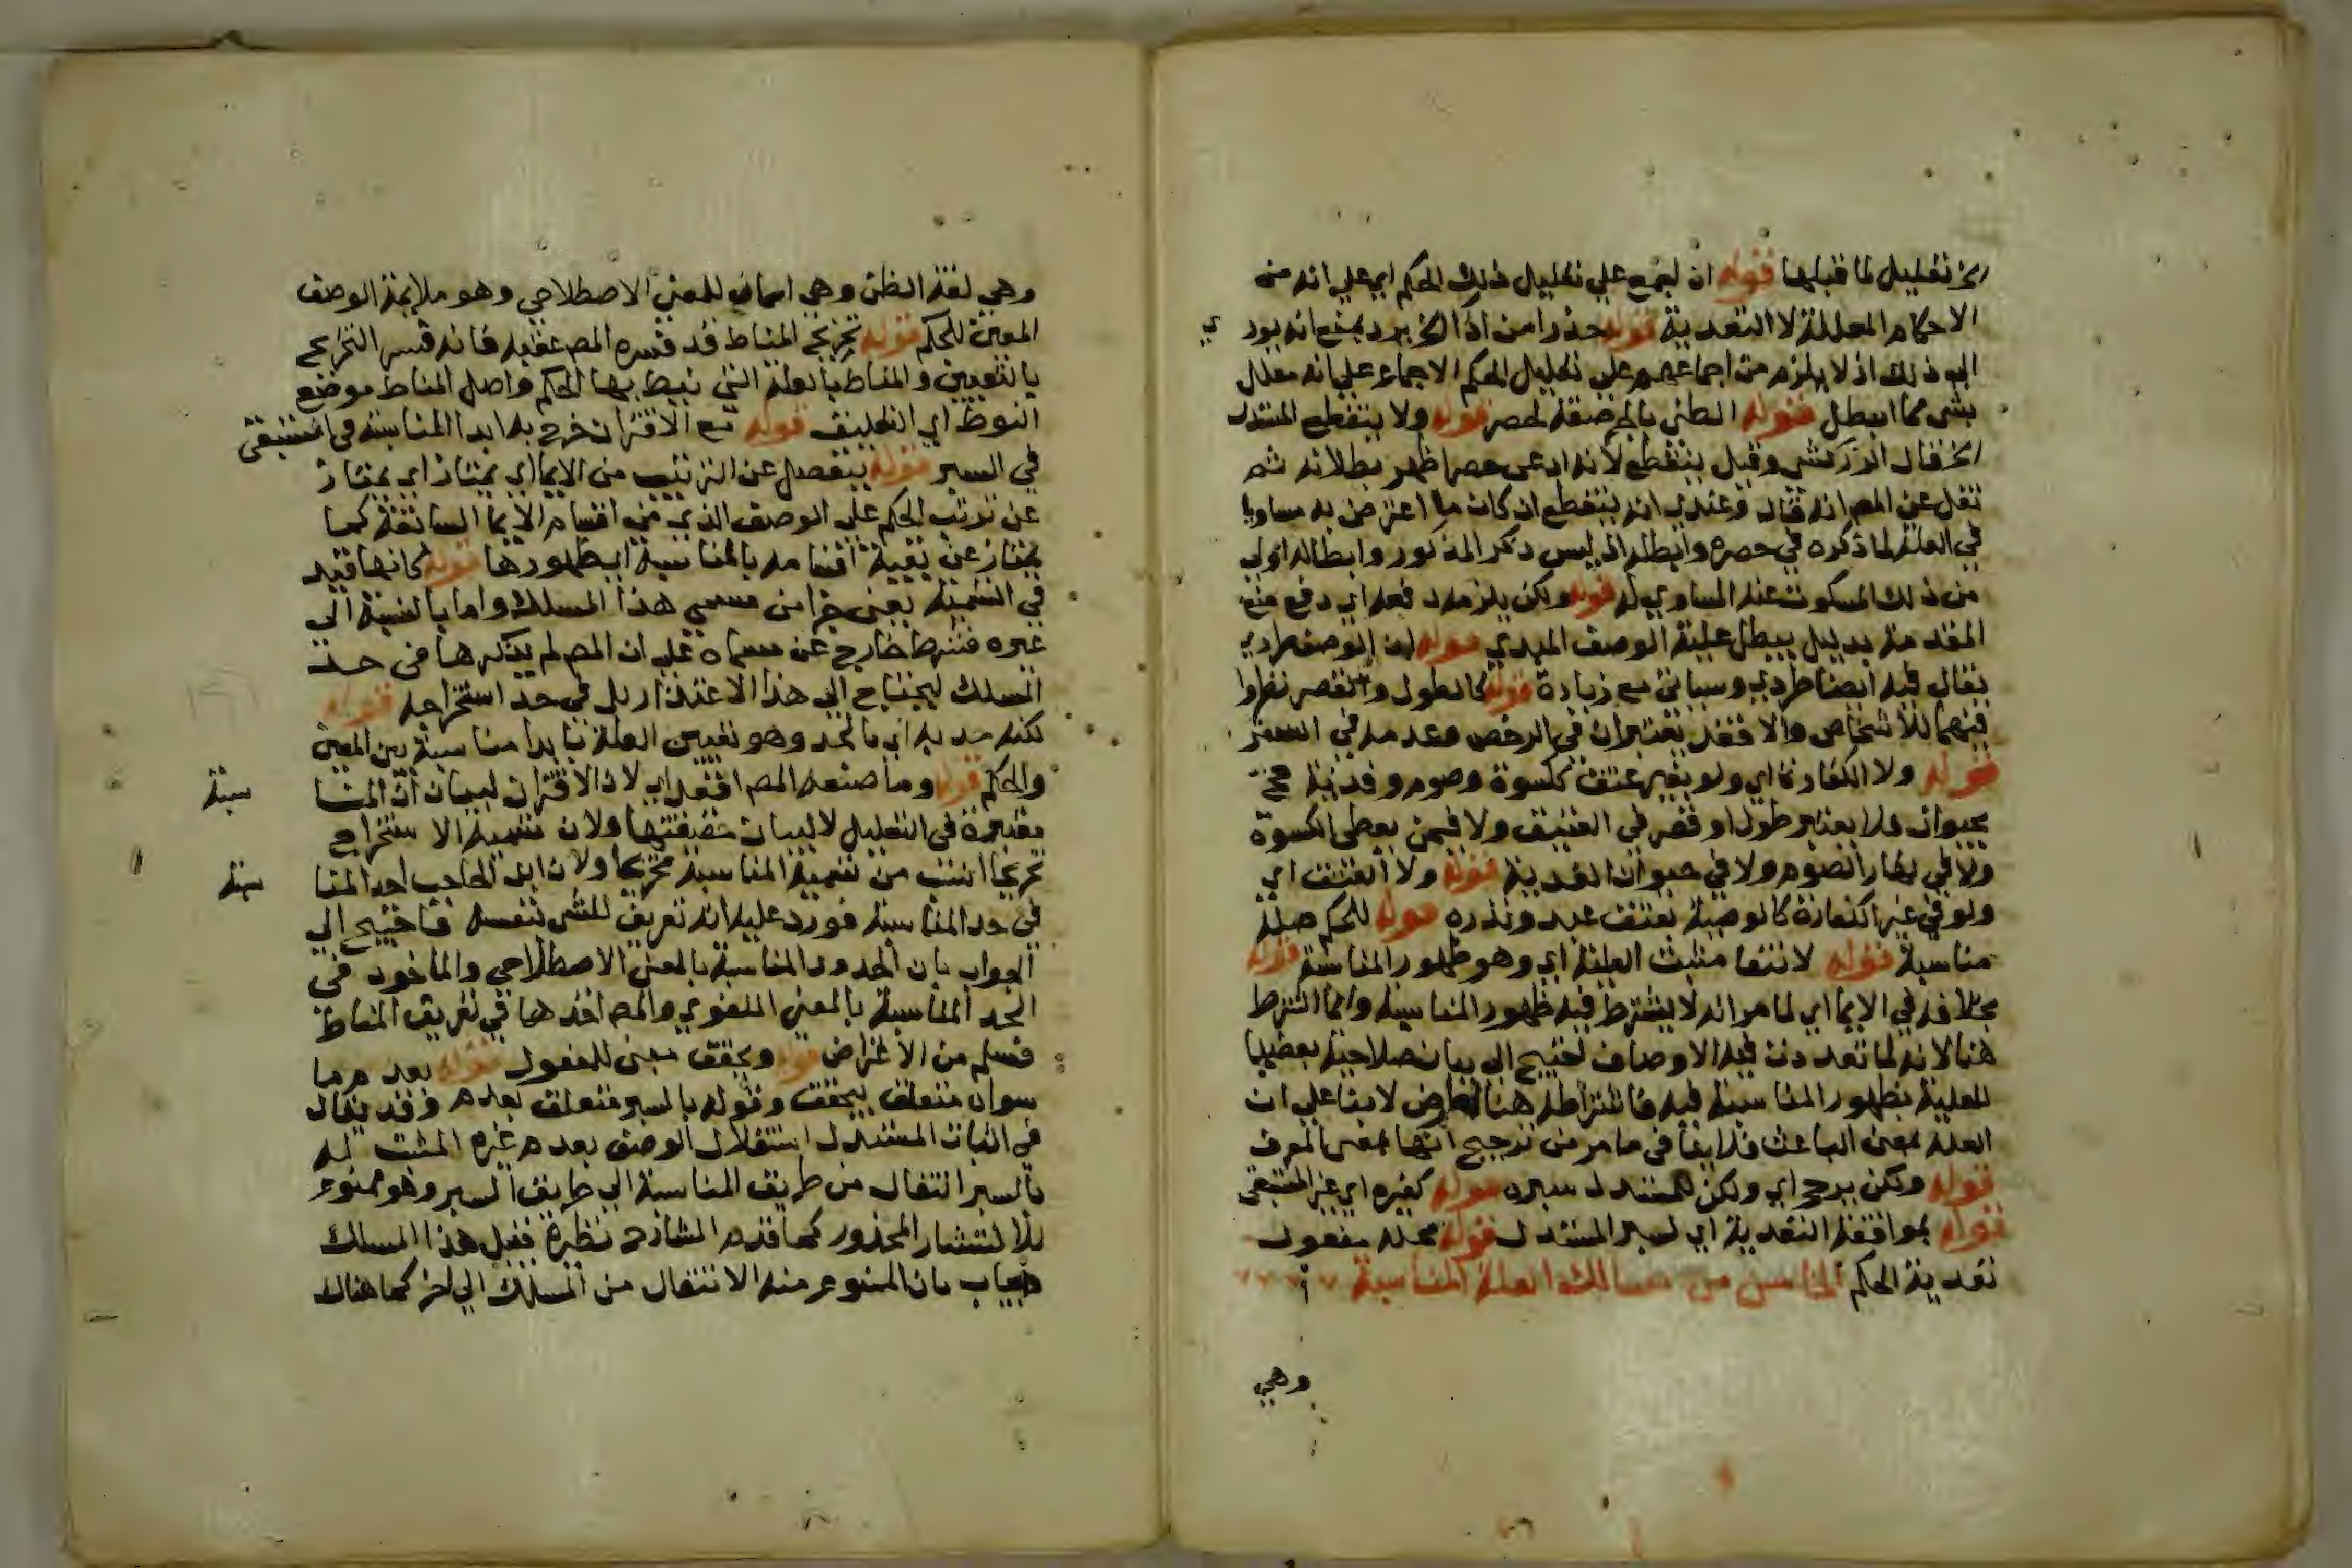 الخ تعليل لما قبلها قوله ان يجمع علي تعليل ذلك الحكم اي علي انه من
الاحكام المعللة لا التعدية قوله حذرا من اذا الخ يرد بمنع انه يود ي
الي ذلك اذ لا يلزم من اجماعهم علي تعليل الحكم الاجماع علي انه معلل
بشي مما ابطل قوله الظني بالجر صفة لحصر قوله ولا ينقطع المستدل
الخ قال الزركشي وقيل ينقطع لانه ادعى حصرا ظهر بطلانه ثم
نقل عن المص انه قال وعندي انه ينقطع ان كان ما اعترض به مساويا
في العلة لما ذكره في حصره وابطله اذ ليس ذكر المذكور وابطاله اولي
من ذلك المسكوت عنه المساوي له قوله ولكن يلزمه دفعه اي دفع منع
المقدمة بدليل يبطل علية الوصف المبدي قوله ان الوصف طردي
يقال فيه ايضا طردي وسياتي مع زيادة قوله كالطول والقصر نظرا
فيهما للاشخاص والا فقد يعتبران في الرخص وعدمه في السفر
قوله ولا الكفارة اي ولو بغير عتق ككسوة وصوم وفدية حج
بحيوان فلا يعتبر طول او قصر في العتيق ولا فيمن يعطى الكسوة
ولا في نهار الصوم ولا في حيوان الفدية قوله ولا العتق اي
ولو في غير الكفارة كالوصية بعتق عبد ونذره قوله للحكم صلة
مناسبة قوله لانتفا مثبت العلية اي وهو ظهور المناسبة قوله
بخلافه في الايما اي لما مر انه لا يشترط فيه ظهور المناسبة وانما اشترط
هنا لانه لما تعددت فيه الاوصاف احتيج الي بيان صلاحية بعضها
للعلية بظهور المناسبة فيه فاشتراطه هنا لعارض لا بنا علي ان
العلة بمعنى الباعث فلا ينافي ما مر من ترجيح انها بمعنى المعرف
قوله ولكن يرجح اي ولكن للمستدل سبره قوله كغيره اي غير المستبقى
قوله بموافقة التعدية اي لسبر المستدل قوله محله مفعول
تعدية الحكم الخامس من مسالك العلة المناسبة
وهي
وهي لغة الظن وهي اسمان للمعنى الاصطلاحي وهو ملايمة الوصف
المعين للحكم قوله تخريج المناط قد فسره المص عقبه فانه فسر التخريج
بالتعيين والمناط بالعلة التي نيط بها الحكم واصل المناط موضع
النوط اي التعليق قوله مع الاقتران خرج به ابدا المناسبة في المستبقى
في السبر قوله ينفصل عن الترتيب من الايما اي يمتاز اي يمتاز
عن ترتيب الحكم علي الوصف الذي من اقسام الايما السابقة كما
يمتاز عن بقية اقسامه بالمناسبة اي ظهورها قوله كانها قيد
في التسمية يعني جزا من مسمي هذا المسلك واما بالنسبة الي
غيره فشرط خارج عن مسماه علي ان المص لم يذكرها في حد
المسلك ليحتاج الي هذا الاعتذار بل في حد استخراجه قوله
لكنه حد به اي بالحد وهو تعيين العلة بابدا مناسبة بين المعين
والحكم قوله وما صنعه المص اقعد اي لان الاقتران لبيان ان المنا سبة
معتبرة في التعليل لا لبيان حقيقتها ولان تسمية الاستخراج
تخريجا انسب من تسمية المناسبة تخريجا ولان ابن الحاجب اخذ المنا سبة
في حد المناسبة فورد عليه انه تعريف للشي بنفسه فاحتيج الي
الجواب بان المحدود المناسبة بالمعنى الاصطلاحي والماخوذ في
الحد المناسبة بالمعنى اللغوي والمص اخذها في تعريف المناط
فسلم من الاعتراض قوله ويحقق مبني للمفعول قوله بعدم ما
سواه متعلق بيحقق وقوله بالسبر متعلق بعدم وقد يقال
في اثبات المستدل استقلال الوصف بعدم غيره المثبت له
بالسبر انتقال من طريق المناسبة الي طريق السبر وهو ممنوع
للانتشار المحذور كما قدم الشارح نظيره قبل هذا المسلك
ويجاب بان الممنوع منه الانتقال من المسلك الي اخر كما هناك